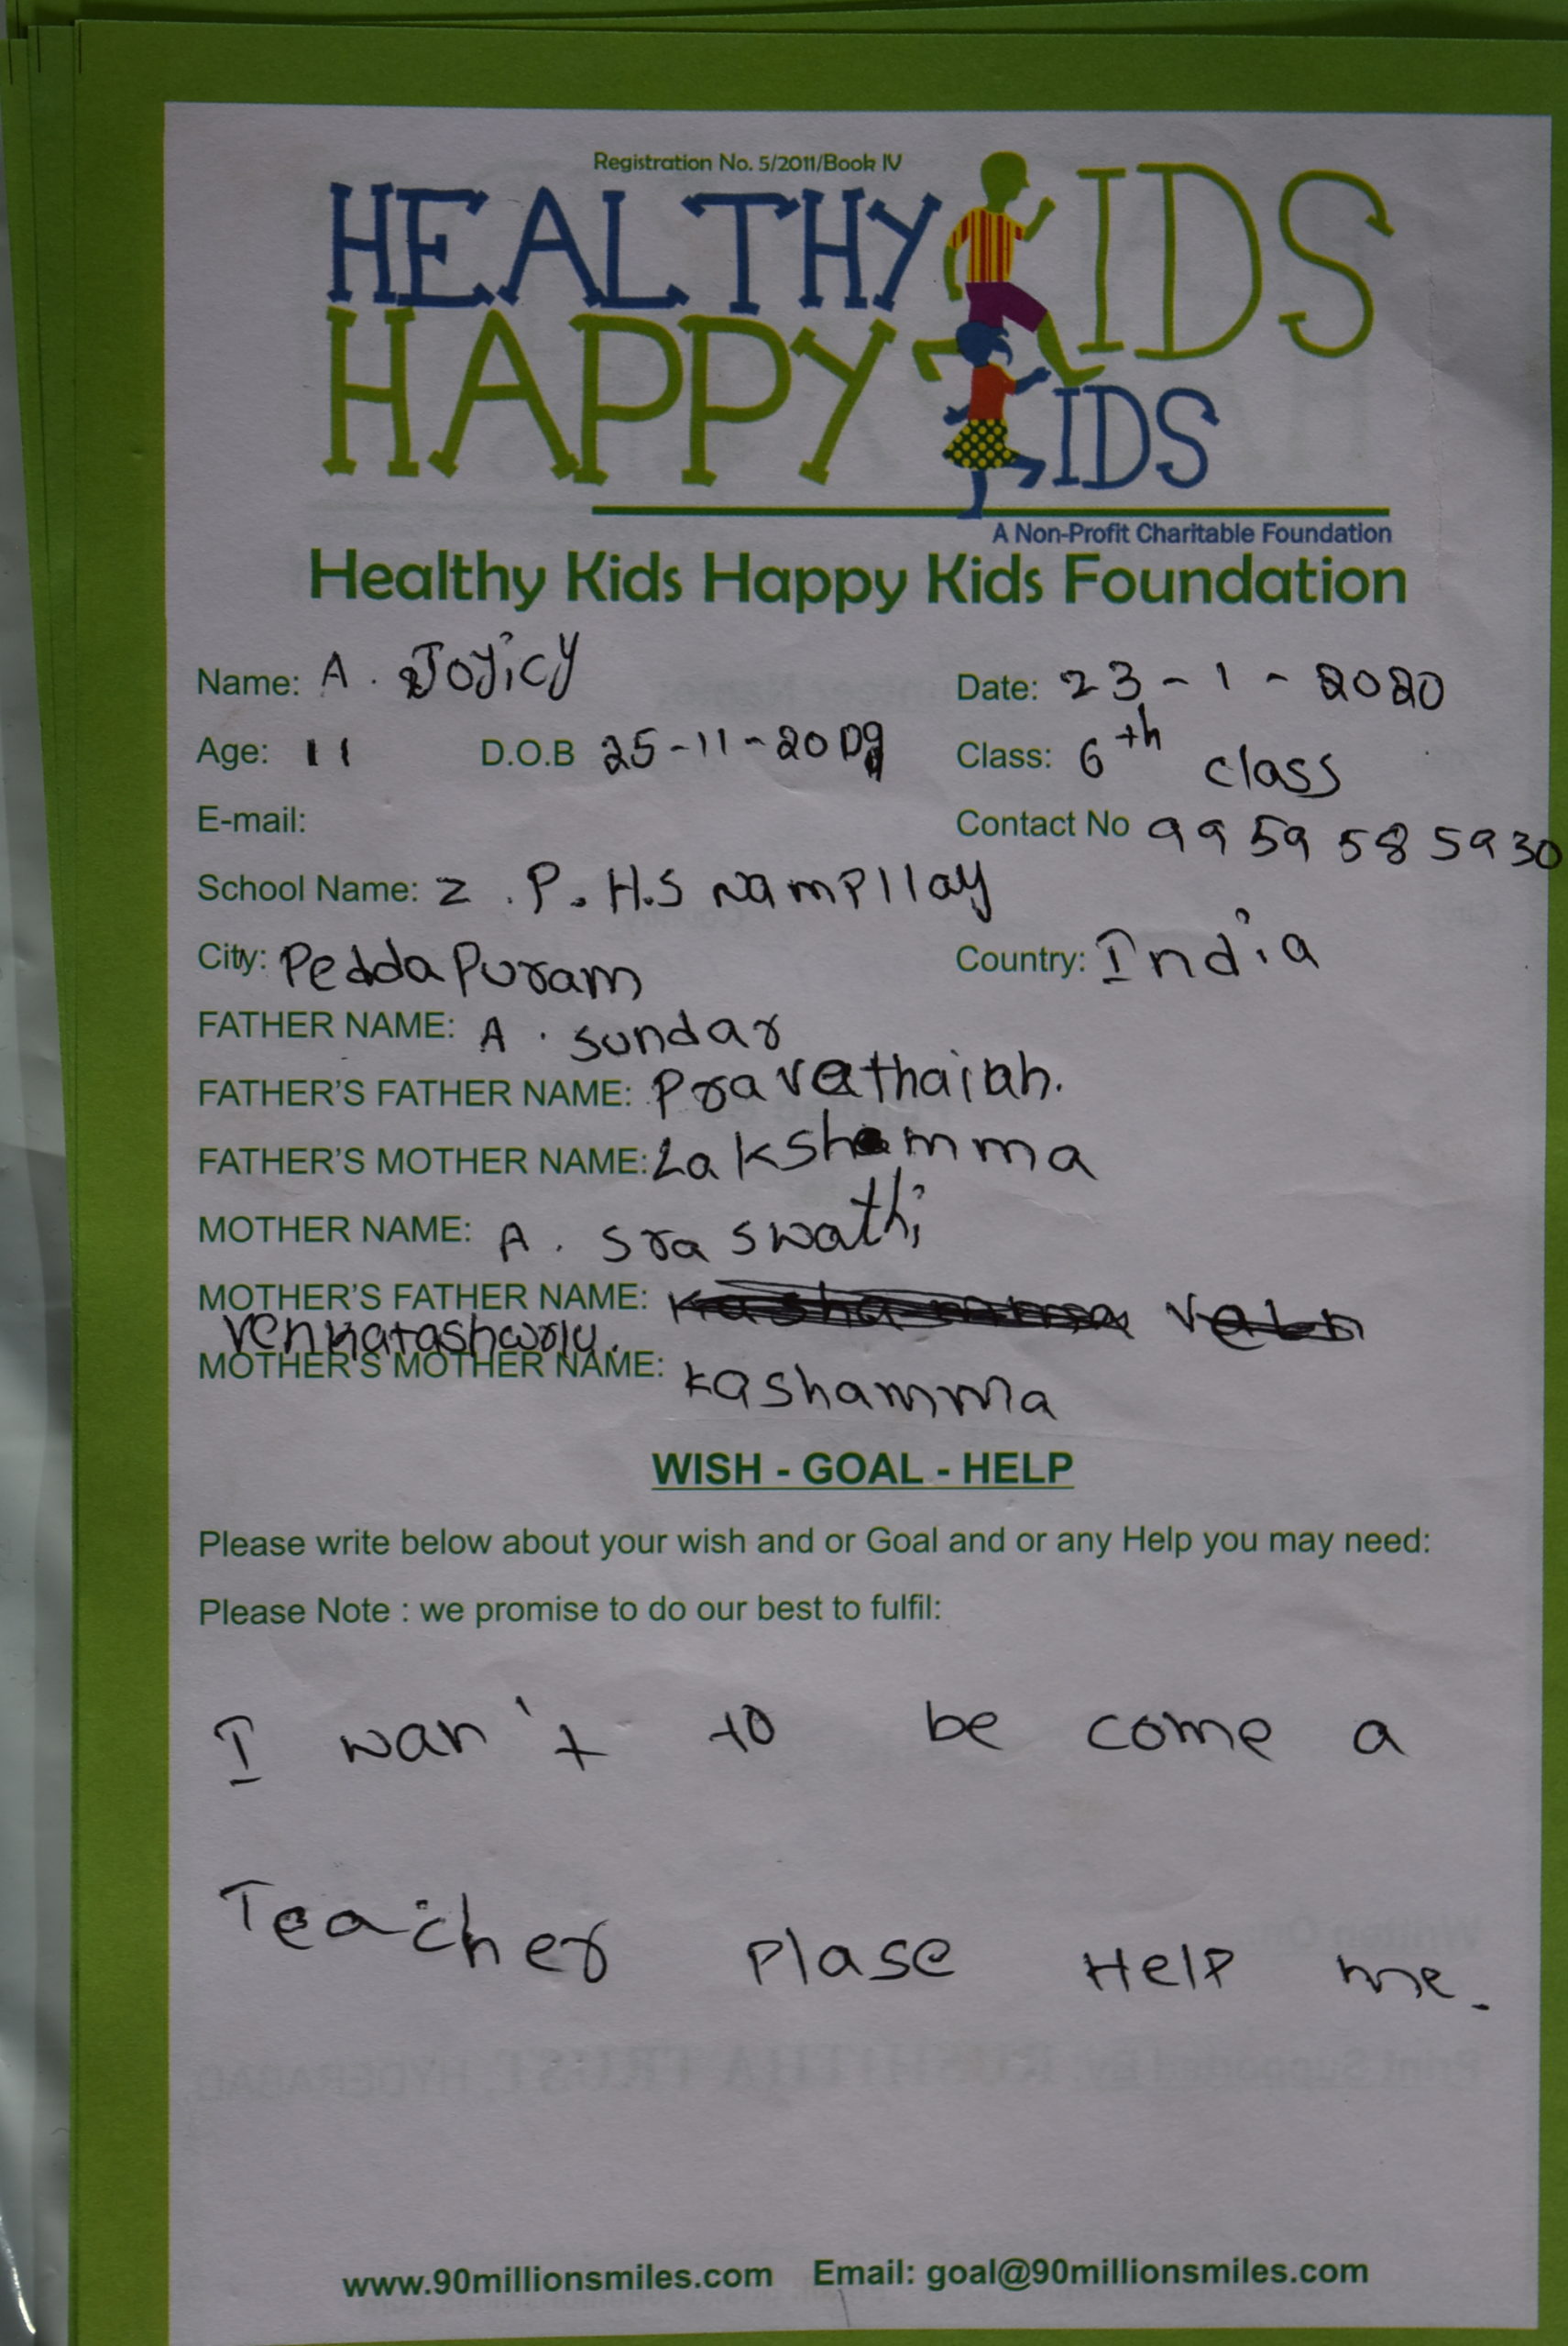 Registration No. 5/2011/Book IV
HEALTHY KIDS
HAPPY KIDS
A Non-Profit Charitable Foundation
Healthy Kids Happy Kids Foundation
Name: A. Joyicy Date: 23-1-2020
Age: 11 D.O.B 25-11-2009 Class: 6th class
E-mail: Contact No 9959585930
School Name: Z.P.H.S Nampllay
City: Peddapuram Country: India
FATHER NAME: A. Sundar
FATHER'S FATHER NAME: Pravathaiah.
FATHER'S MOTHER NAME: Lakshamma
MOTHER NAME: A. Sraswathi
MOTHER'S FATHER NAME: Kashamma
Venkatashwrlu.
MOTHER'S MOTHER NAME: Kashamma
WISH - GOAL - HELP
Please write below about your wish and or Goal and or any Help you may need:
Please Note : we promise to do our best to fulfil:
I wan't to be come a
Teacher Plase Help me.
www.90millionsmiles.com Email: goal@90millionsmiles.com